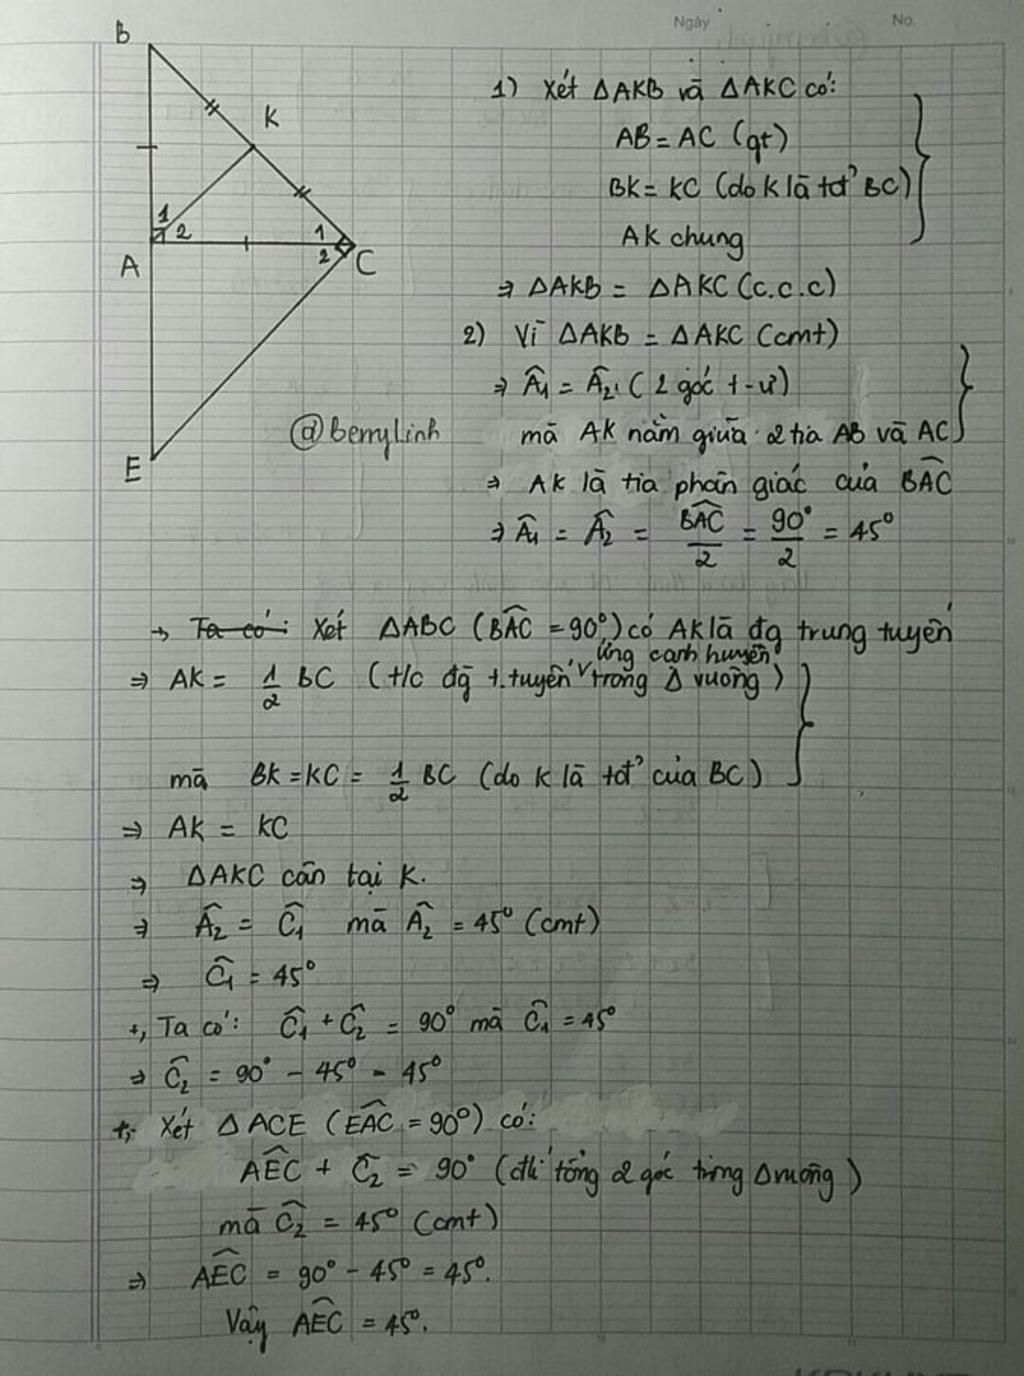 Ngày No.
B
K
1
2
1
2
A
C
E
@berrylinh
1) Xét ΔAKB và ΔAKC có:
AB = AC (gt)
BK = KC (do K là tđ' BC)
AK chung
⇒ ΔAKB = ΔAKC (c.c.c)
2) Vì ΔAKB = ΔAKC (cmt)
⇒ Â1 = Â2 (2 góc t-ư)
mà AK nằm giữa 2 tia AB và AC
⇒ AK là tia phân giác của BÂC
⇒ Â1 = Â2 = BÂC/2 = 90°/2 = 45°
→ Ta có: Xét ΔABC (BÂC = 90°) có AK là đg trung tuyến
ứng cạnh huyền
⇒ AK = 1/2 BC (t/c đg t.tuyến v trong Δ vuông)
mà BK = KC = 1/2 BC (do K là tđ' của BC)
⇒ AK = KC
⇒ ΔAKC cân tại K.
⇒ Â2 = Ĉ1 mà Â2 = 45° (cmt)
⇒ Ĉ1 = 45°
+, Ta có: Ĉ1 + Ĉ2 = 90° mà Ĉ1 = 45°
⇒ Ĉ2 = 90° - 45° = 45°
+, Xét ΔACE (EÂC = 90°) có:
AÊC + Ĉ2 = 90° (đlí tổng 2 góc trong Δvuông)
mà Ĉ2 = 45° (cmt)
⇒ AÊC = 90° - 45° = 45°.
Vậy AÊC = 45°.